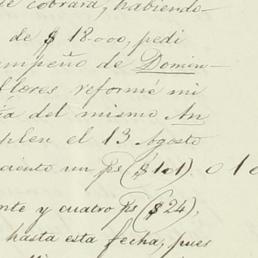 se cobrará, habiendo
de $18.000, pedi
empeño de Domin-
flores reformé mi
del mismo An
plen el 13 Agosto
ciento un ps ($101). o 1 o
nte y cuatro ps ($24),
hasta esta fecha, pues